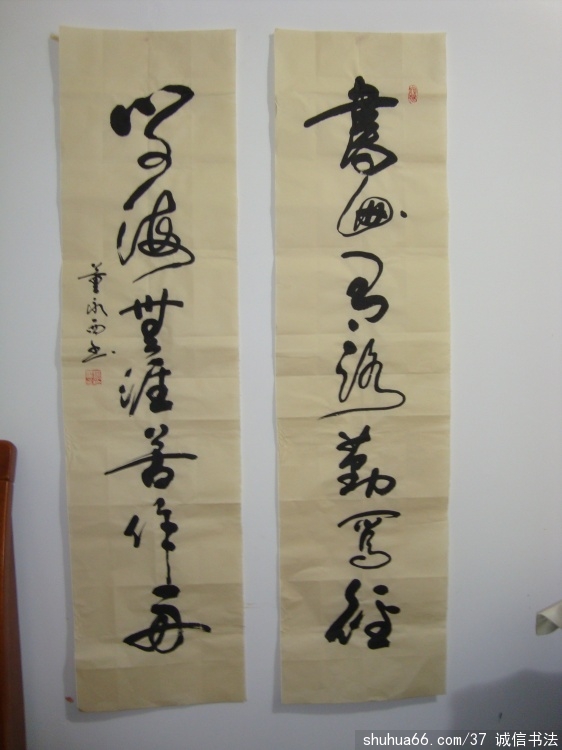 書山有路勤為徑
學海無涯苦作舟
董永西书
shuhua66.com/37 诚信书法